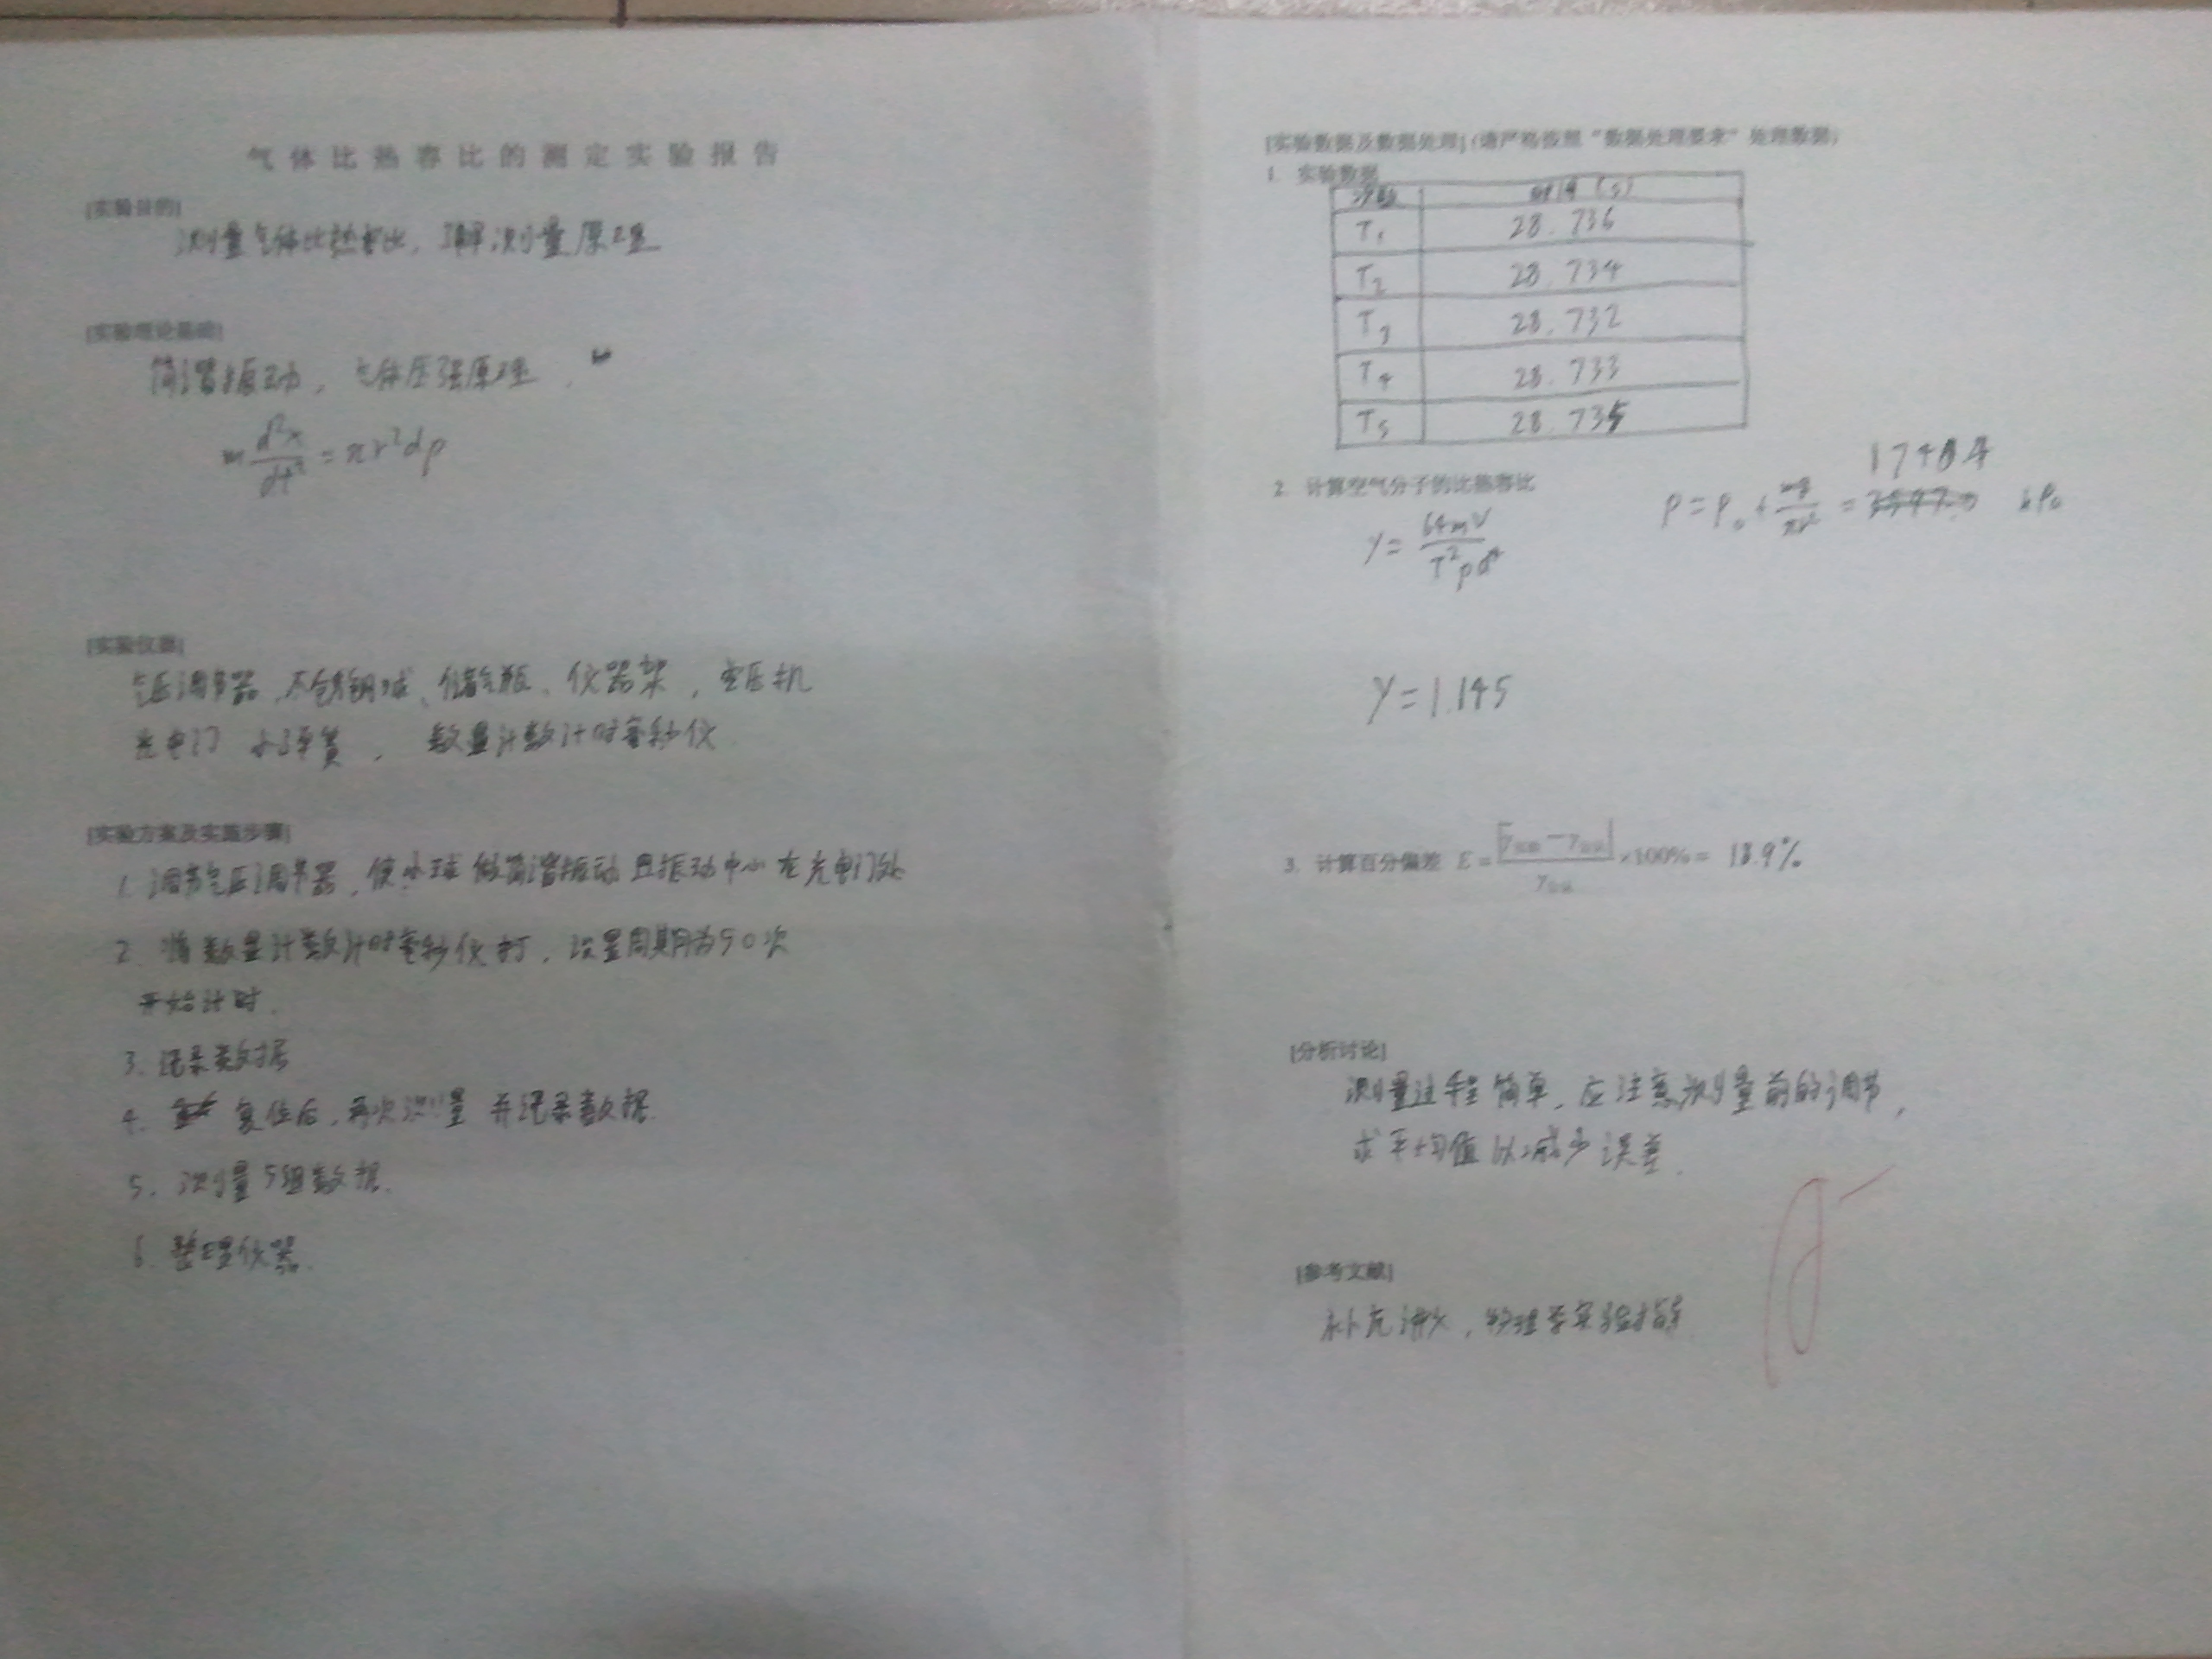 气体比热容比的测定实验报告
[实验目的]
测量气体比热容比，了解测量原理
[实验理论基础]
简谐振动，气体压强原理，
m d²x/dt² = πr²dp
[实验仪器]
气压调节器、不锈钢球、储气瓶、仪器架，空压机
光电门 小弹簧， 数量计数计时毫秒仪
[实验方案及实施步骤]
1. 调节气压调节器，使小球做简谐振动且振动中心在光电门处
2. 将数量计数计时毫秒仪打，设置周期为50次
开始计时.
3. 记录数据
4. 复位后，再次测量并记录数据.
5. 测量5组数据.
6. 整理仪器.
[实验数据及数据处理]（请严格按照“数据处理要求”处理数据）
1. 实验数据
时间 (s)
T₁ 28.736
T₂ 28.734
T₃ 28.732
T₄ 28.733
T₅ 28.735
2. 计算空气分子的比热容比
γ = 64mV / T²pd⁴
P = P₀ + mg/πr² =
γ = 1.145
3. 计算百分偏差 E = ×100% = 18.9%
[分析讨论]
测量过程简单，应注意测量前的调节，
求平均值以减少误差.
[参考文献]
补充讲义，物理学实验指导